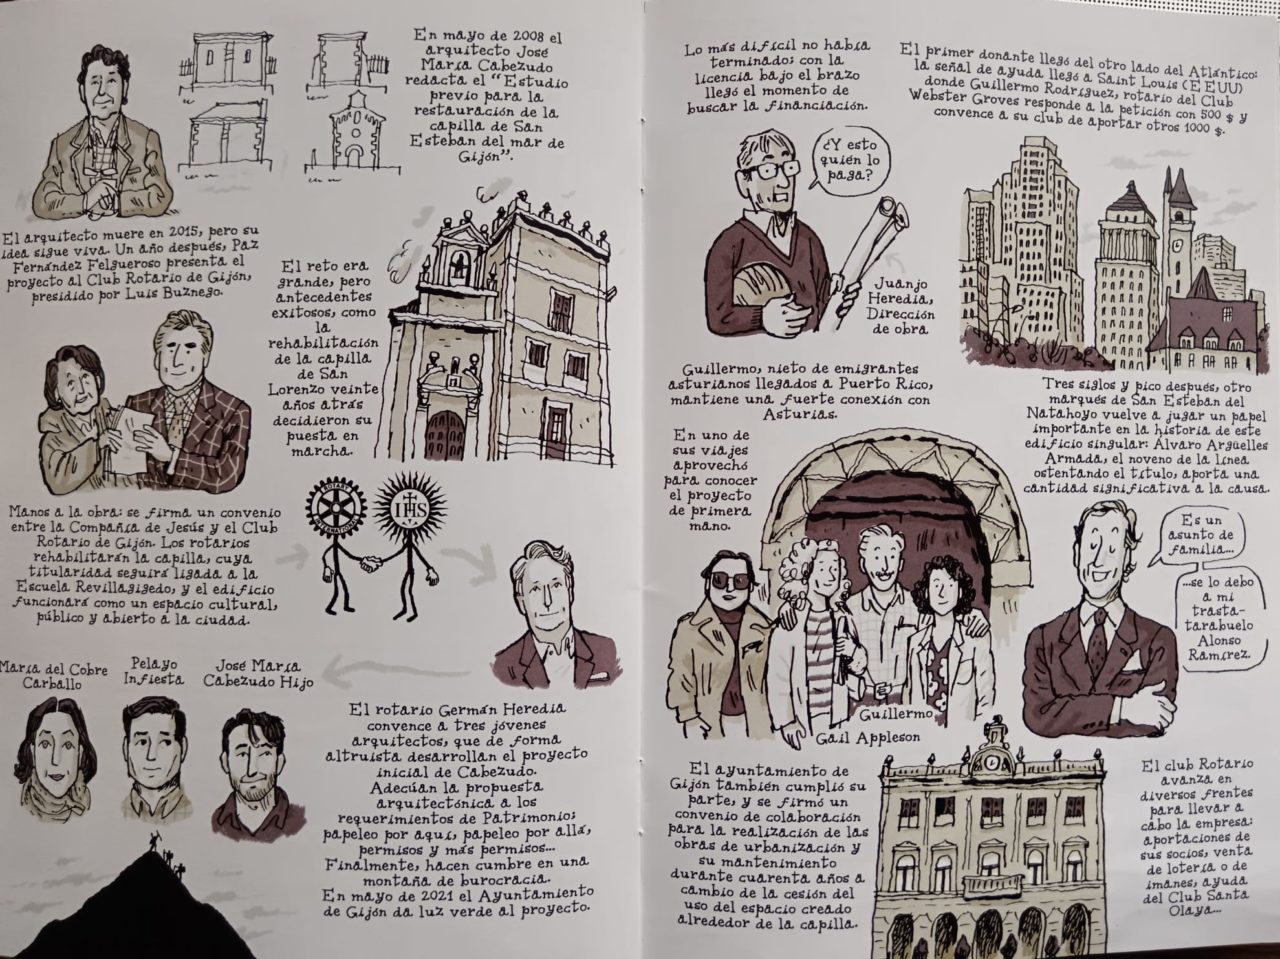 En mayo de 2008 el
arquitecto José
María Cabezudo
redacta el "Estudio
previo para la
restauración de la
capilla de San
Esteban del mar de
Gijón".
El arquitecto muere en 2015, pero su
idea sigue viva. Un año después, Paz
Fernández Felgueroso presenta el
proyecto al Club Rotario de Gijón,
presidido por Luis Buznego.
El reto era
grande, pero
antecedentes
exitosos, como
la
rehabilitación
de la capilla
de San
Lorenzo veinte
años atrás
decidieron su
puesta en
marcha.
Manos a la obra: se firma un convenio
entre la Compañía de Jesús y el Club
Rotario de Gijón. Los rotarios
rehabilitarán la capilla, cuya
titularidad seguirá ligada a la
Escuela Revillagigedo, y el edificio
funcionará como un espacio cultural,
público y abierto a la ciudad.
ROTARY
INTERNATIONAL
IHS
María del Cobre
Carballo
Pelayo
Infiesta
José María
Cabezudo Hijo
El rotario Germán Heredia
convence a tres jóvenes
arquitectos, que de forma
altruista desarrollan el proyecto
inicial de Cabezudo.
Adecúan la propuesta
arquitectónica a los
requerimientos de Patrimonio;
papeleo por aquí, papeleo por allá,
permisos y más permisos...
Finalmente, hacen cumbre en una
montaña de burocracia.
En mayo de 2021 el Ayuntamiento
de Gijón da luz verde al proyecto.
Lo más difícil no había
terminado; con la
licencia bajo el brazo
llegó el momento de
buscar la financiación.
El primer donante llegó del otro lado del Atlántico:
la señal de ayuda llegó a Saint Louis (EEUU)
donde Guillermo Rodríguez, rotario del Club
Webster Groves responde a la petición con 500 $ y
convence a su club de aportar otros 1000 $.
¿Y esto
quién lo
paga?
Juanjo
Heredia,
Dirección
de obra
Guillermo, nieto de emigrantes
asturianos llegados a Puerto Rico,
mantiene una fuerte conexión con
Asturias.
En uno de
sus viajes
aprovechó
para conocer
el proyecto
de primera
mano.
Guillermo
Gail Appleson
Tres siglos y pico después, otro
marqués de San Esteban del
Natahoyo vuelve a jugar un papel
importante en la historia de este
edificio singular: Álvaro Argüelles
Armada, el noveno de la línea
ostentando el título, aporta una
cantidad significativa a la causa.
Es un
asunto de
familia...
...se lo debo
a mi
trasta-
tarabuelo
Alonso
Ramírez.
El ayuntamiento de
Gijón también cumplió su
parte, y se firmó un
convenio de colaboración
para la realización de las
obras de urbanización y
su mantenimiento
durante cuarenta años a
cambio de la cesión del
uso del espacio creado
alrededor de la capilla.
El club Rotario
avanza en
diversos frentes
para llevar a
cabo la empresa:
aportaciones de
sus socios, venta
de lotería o de
imanes, ayuda
del Club Santa
Olaya...